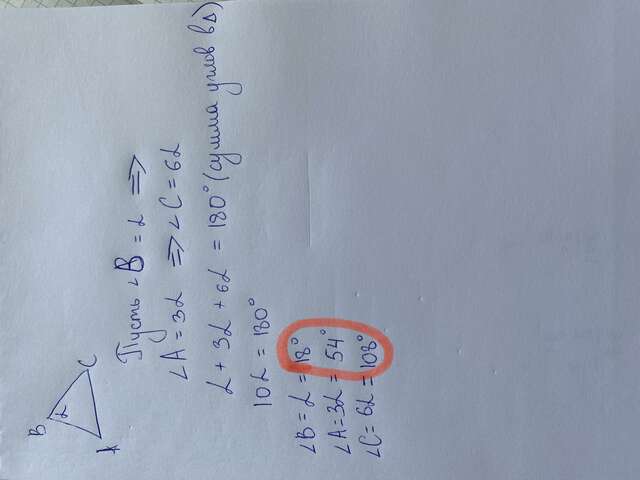 B
α
A
C
Пусть ∠B = α ⇒
∠A = 3α ⇒ ∠C = 6α
α + 3α + 6α = 180° (сумма углов в Δ)
10α = 180°
∠B = α = 18°
∠A = 3α = 54°
∠C = 6α = 108°